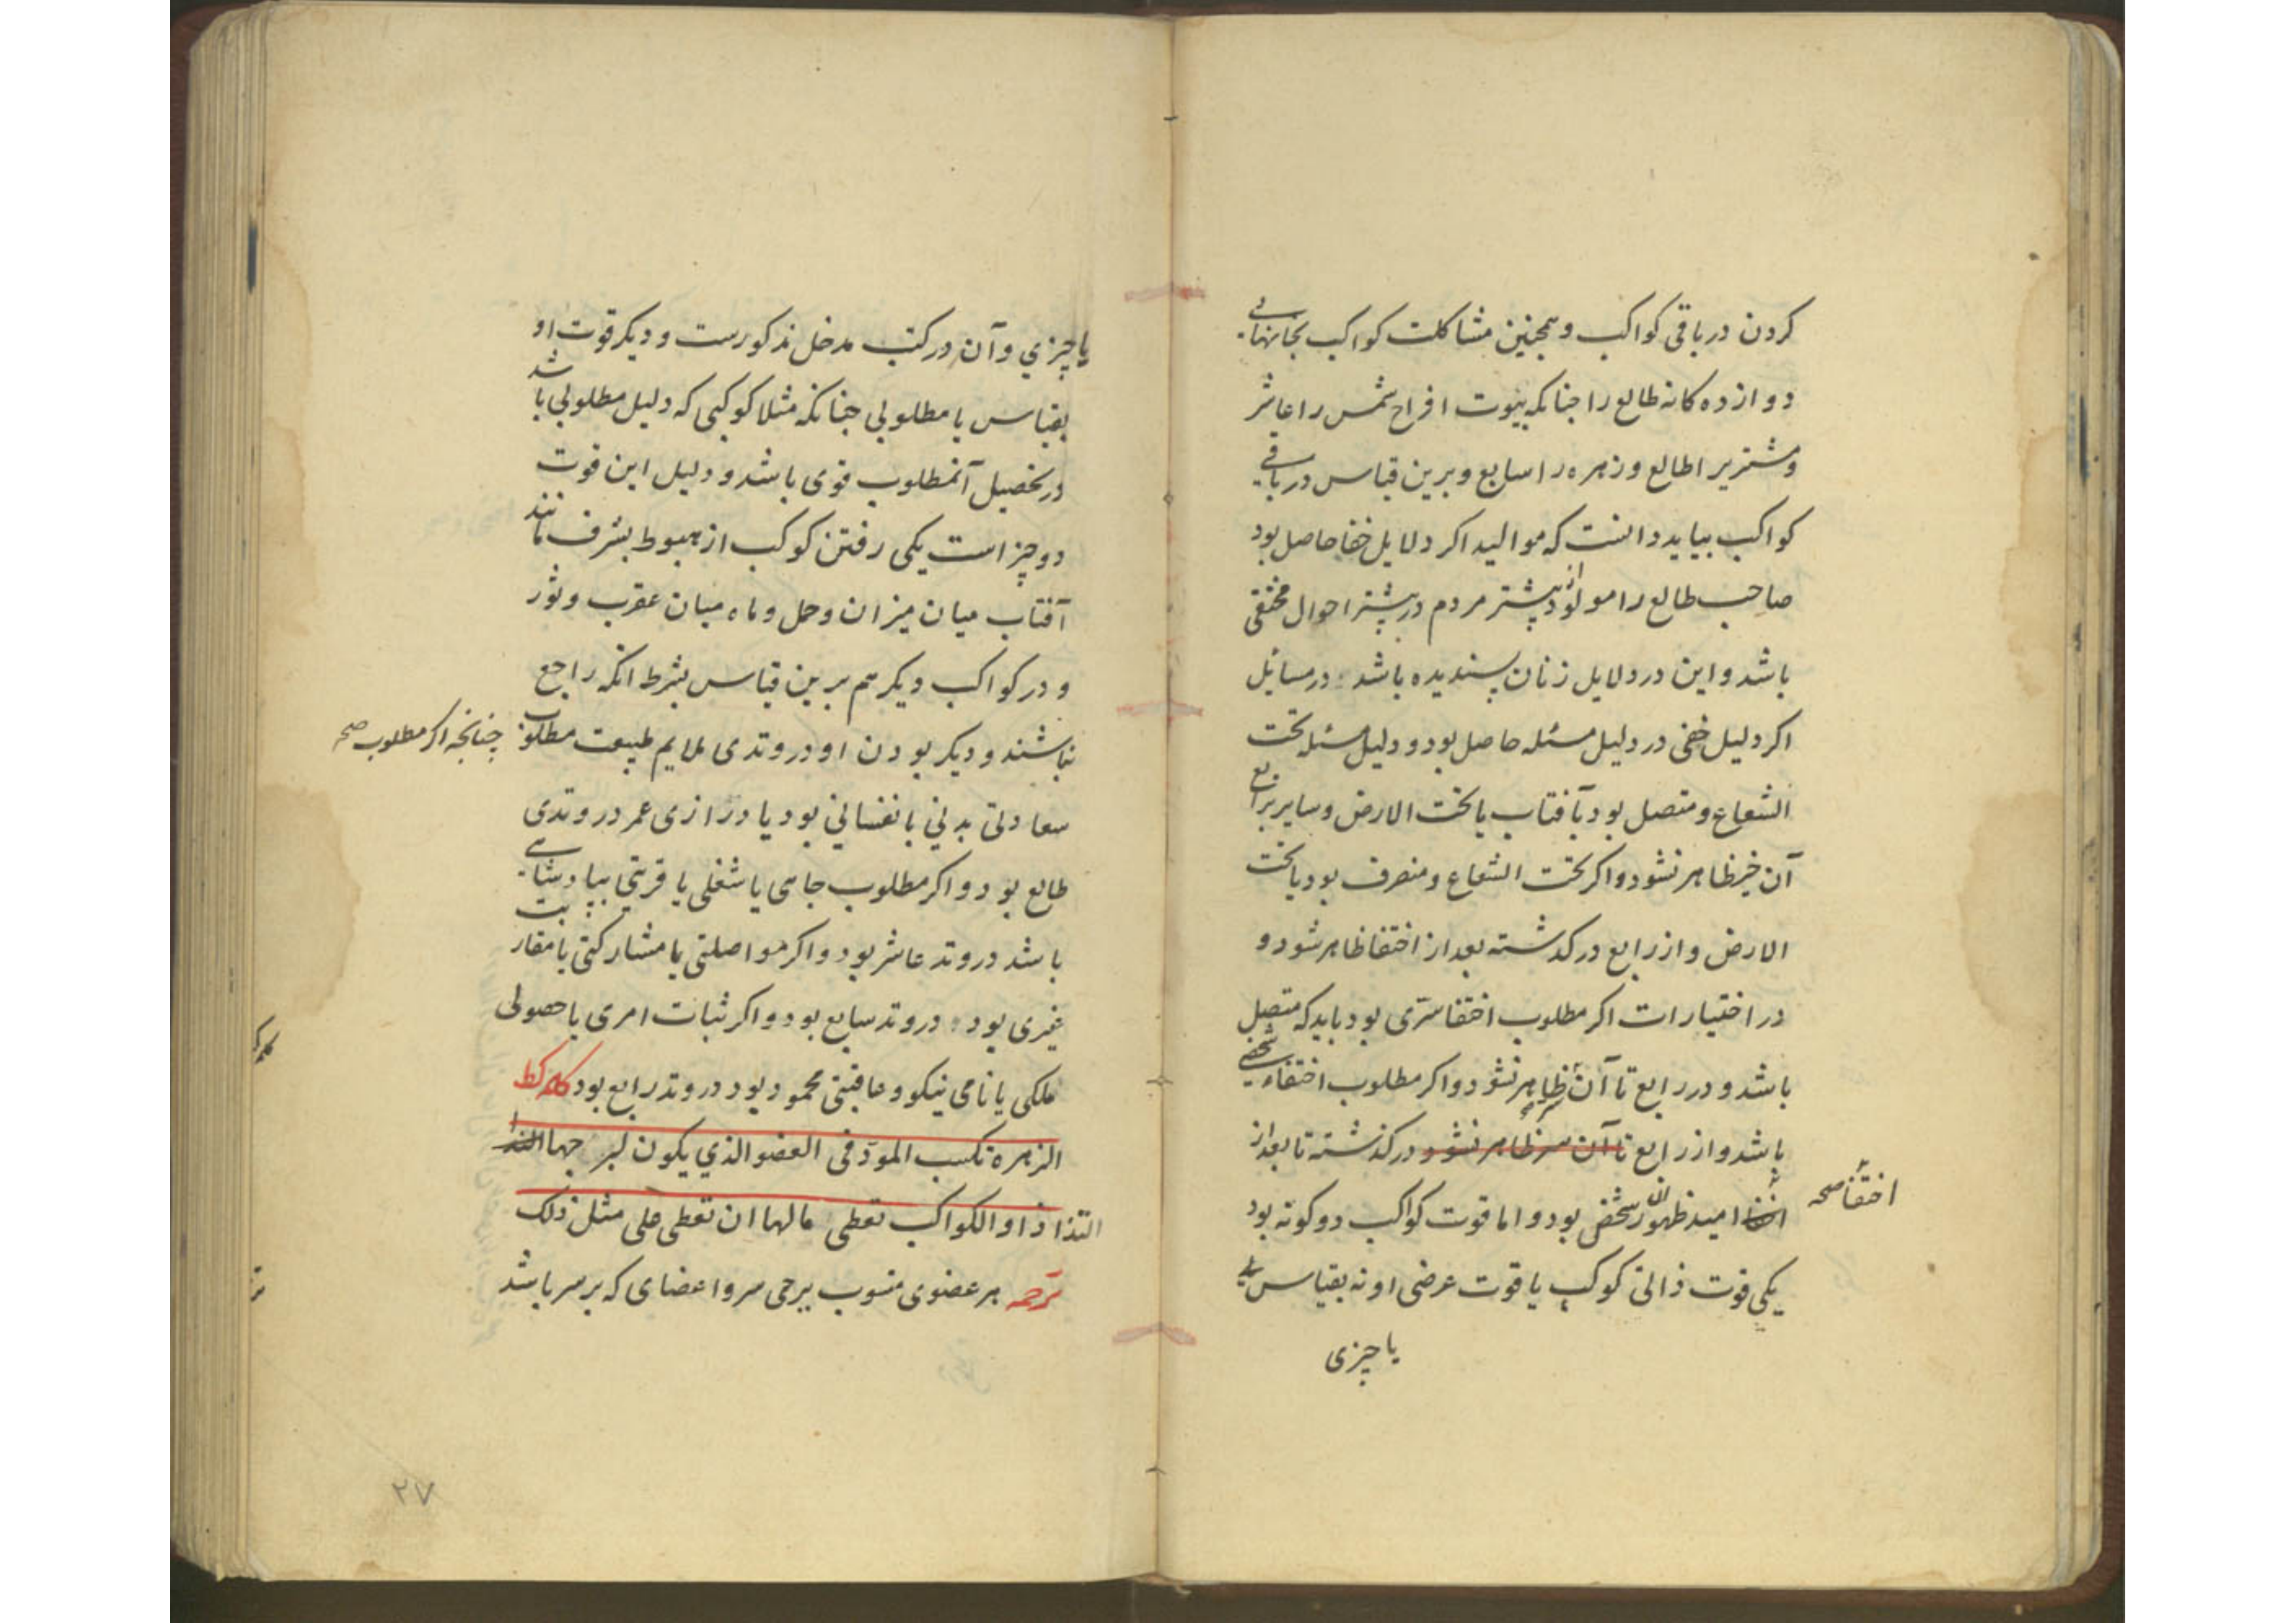 کردن در باقی کواکب و همچنین مشاکلت کواکب بخانهای
دوازده کانه طالع را چنانکه بیوت افراح شمس را عاشر
و مشتریرا طالع و زهره را سابع و برین قیاس در باقی
کواکب بباید دانست که موالید اکر دلایل خفا حاصل بود
صاحب طالع را مولود از بیشتر مردم در بیشتر احوال مختفی
باشد و این در دلایل زنان پسندیده باشد در مسایل
اکر دلیل خفی در دلیل مسئله حاصل بود و دلیل مسئله تحت
الشعاع و متصل بود بآفتاب یا تحت الارض و سایر برابع
آن خبر ظاهر نشود و اکر تحت الشعاع و منصرف بود یا تحت
الارض و از رابع درکذشته بعد از اختفا ظاهر شود و
در اختیارات اکر مطلوب اختفا سری بود باید که متصل
باشد و در رابع تا آن ظاهر نشود و اکر مطلوب اختفاء شخصی
باشد و از رابع تا آن سر ظاهر نشود درکذشته تا بعد از
امید ظهور آن شخص بود و اما قوت کواکب دو کونه بود
اختفا صحه
یکی قوت ذاتی کوکب یا قوت عرضی او نه بقیاس با
یا چیزی
یا چیزی و آن در کتب مدخل مذکورست و دیکر قوت او
بقیاس با مطلوبی چنانکه مثلا کوکبی که دلیل مطلوبی باشد
در تحصیل آنمطلوب قوی باشد و دلیل این قوت
دو چیز است یکی رفتن کوکب از هبوط بشرف مانند
آفتاب میان میزان و حمل و ماه میان عقرب و ثور
و در کواکب دیکر هم برین قیاس بشرط آنکه راجع
نباشند و دیکر بودن او در وتدی ملایم طبیعت مطلوب
چنانچه اکر مطلوب صحه
سعادتی بدنی یا نفسانی بود یا درازی عمر در وتدی
طالع بود و اکر مطلوب جاهی یا شغلی یا قربتی بپادشاهی
باشد در وتد عاشر بود و اکر مواصلتی یا مشارکتی یا مقاربت
غیری بود در وتد سابع بود و اکر ثبات امری یا حصولی
ملکی یا نامی نیکو و عاقبتی محمود بود در وتد رابع بود کلمه کط
الزهره تکسب المود فی العضو الذی یکون لبرجها
التذاذا و الکواکب تعطی مالها ان تعطی علی مثل ذلک
ترجمه هر عضوی منسوب ببرجی سر و اعضای که بر سر باشد
۲۷